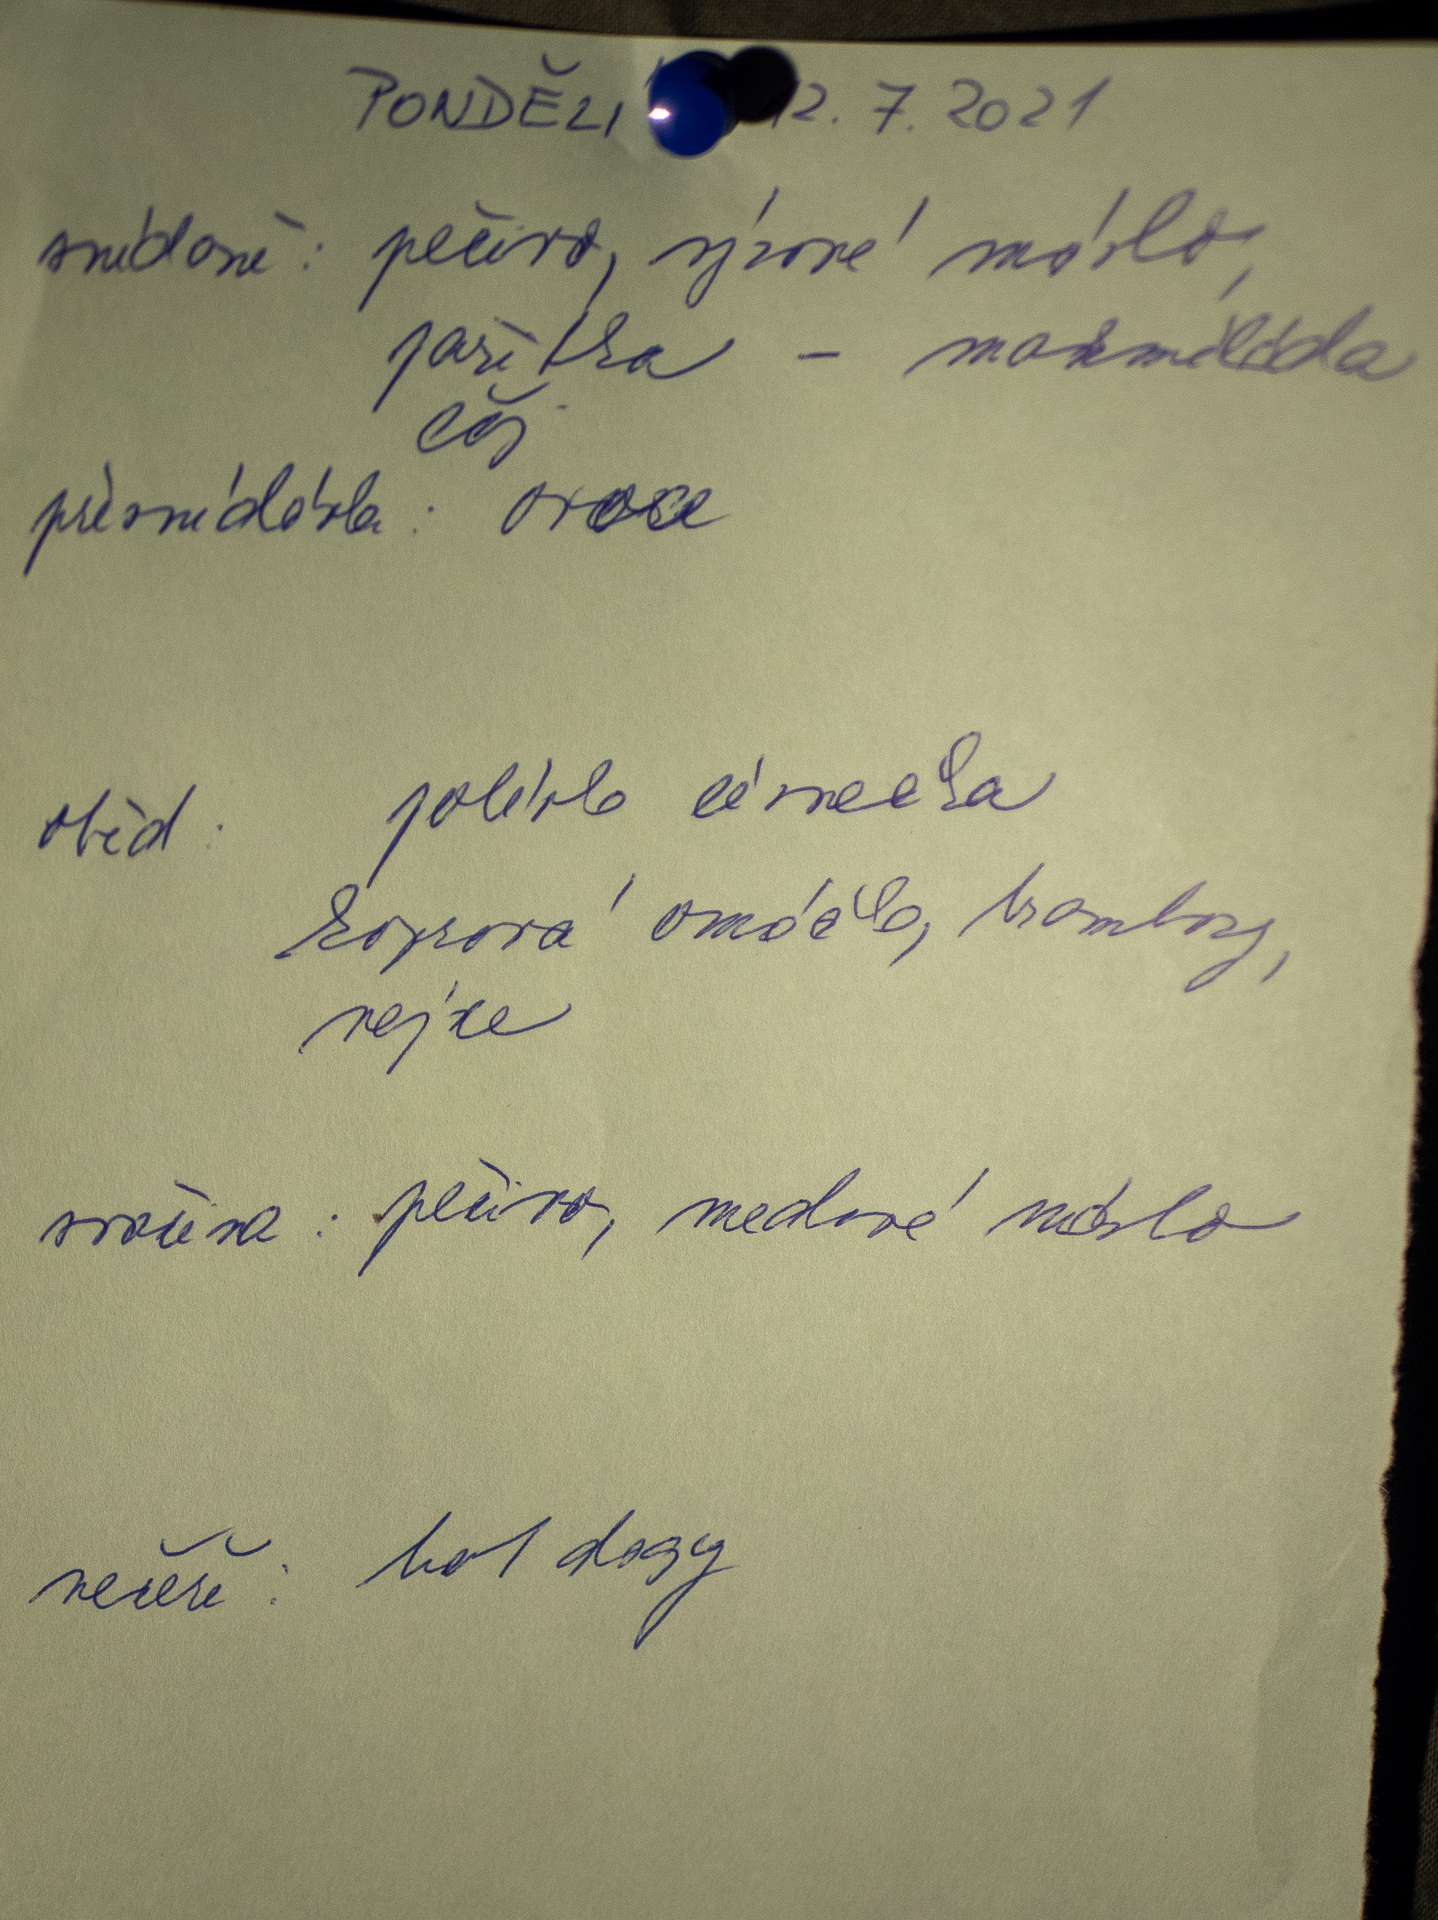 PONDĚLÍ 12. 7. 2021
snídaně: pečivo, sýrové máslo,
paštika - marmeláda
čaj
přesnídávka: ovoce
oběd: polévka čínečka
koprová omáčka, brambory,
vejce
svačina: pečivo, medové máslo
večeře: hot dogy